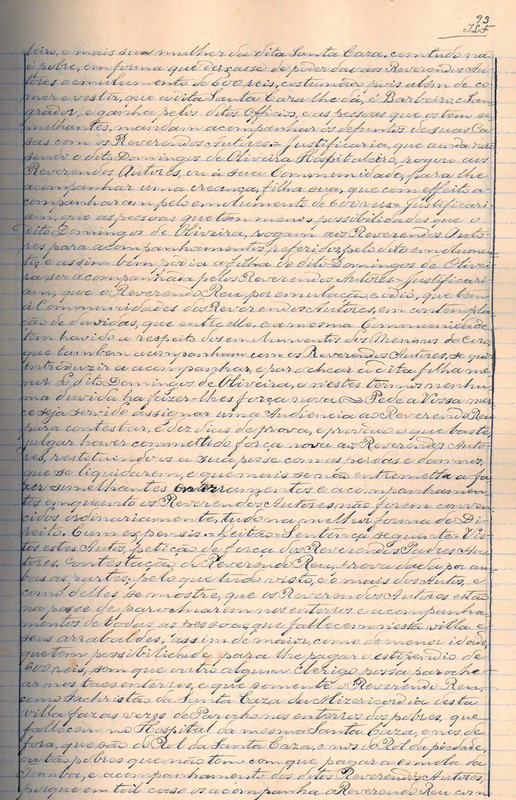 93
leiro, e mais sua mulher da dita Santa Caza, comtudo não
é pobre, em forma que deixasse de poder dar aos Reverendos Au-
tores o emulumento de 600 reis, costumado pois alem de co-
mer e vestir, que a dita Santa Caza lhe dá, é Barbeiro e San-
grador, e ganha pelos ditos officios, e as pessoas que estam se-
melhantes, mandam acompanhar os defuntos de suas Ca-
sas com os Reverendos Autores. Justificaria, que ainda não
sendo o dito Domingos de Oliveira Hospitaleiro, rogou aos
Reverendos Autores, ou á sua Communidade, para lhe
acompanhar uma creança, filha sua, que com effeito a-
companharam pelo emulumento de 600 reis. Justificari-
am, que as pessoas que têm menos possibilidades que o
dito Domingos de Oliveira, rogam aos Reverendos Auto-
res para acompanhamentos referidos, pelo dito emolumen-
to, e assim bem podia a filha do dito Domingos de Olivei-
ra ser acompanhada pelos Reverendos Autores. Justificari-
am, que o Reverendo Reu por emulação, e odio, que tem
á Communidade dos Reverendos Autores, em contempla-
ção de duvidas, que entre elle, e a mesma Communidade
tem havido a respeito dos emulumentos dos Meninos do Coro,
que tambem acompanham com os Reverendos Autores, se quiz
introduzir a acompanhar, e parochear a dita filha me-
nor do dito Domingos de Oliveira, e n'estes termos nenhu-
ma duvida ha fazer-lhes força nova. Pede a Vossa mer-
cê seja servido assignar uma Audiencia ao Reverendo Reu
para contestar, e dez dias de prova, e provado o que baste,
julgar haver commettido força nova aos Reverendos Auto-
res, restituindo-os a sua posse com as perdas e damnos,
que se liquidarem, e que mais se não entrometta a fa-
zer similhantes enterramentos e acompanhamen-
tos emquanto os Reverendos Autores não forem conven-
cidos ordinariamente, tudo na melhor forma de Di-
reito. Cum expensis. Leitão. Sentença seguinte. Vis-
tos estes Autos, petição de força dos Reverendos Padres Au-
tores, Contestação do Reverendo Reu, prova dada por am-
bas as partes; pelo que tudo visto, e o mais dos Autos, e
como d'elles se mostre, que os Reverendos Autores estão
na posse de parochiarem nos enterros e acompanha-
mentos de todas as pessoas, que fallecem n'esta villa e
seus arrabaldes, assim de maior, como de menor idade,
que têm possibilidade para lhe pagar o estipendio de
600 reis, sem que outro algum Clerigo possa parochi-
ar nos taes enterros, e que somente o Reverendo Reu,
como Sachristão da Santa Caza da Mizericordia desta
villa faz as vezes de Parocho nos enterros dos pobres, que
fallecem no Hospital da mesma Santa Caza, e nos de
fora, que são do Rol da Santa Caza, e nos do Rol da piedade,
ou tão pobres que não têm com que pagar a esmola da
Tumba, e acompanhamento dos ditos Reverendos Autores,
porque em tal caso os acompanha o Reverendo Reu com